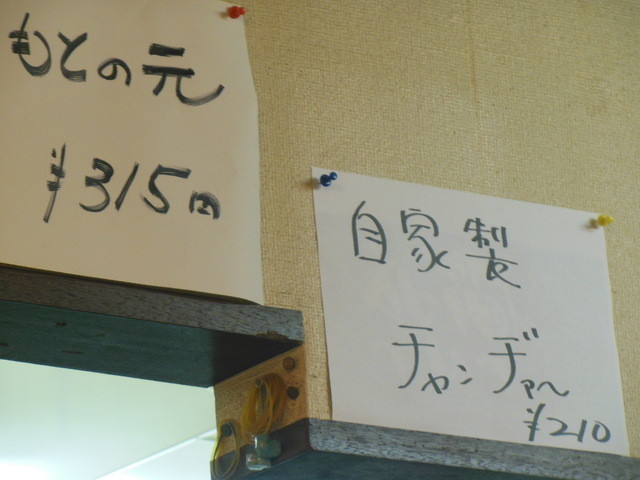 もとの元
¥315円
自家製
チャンヂャ〜
¥210